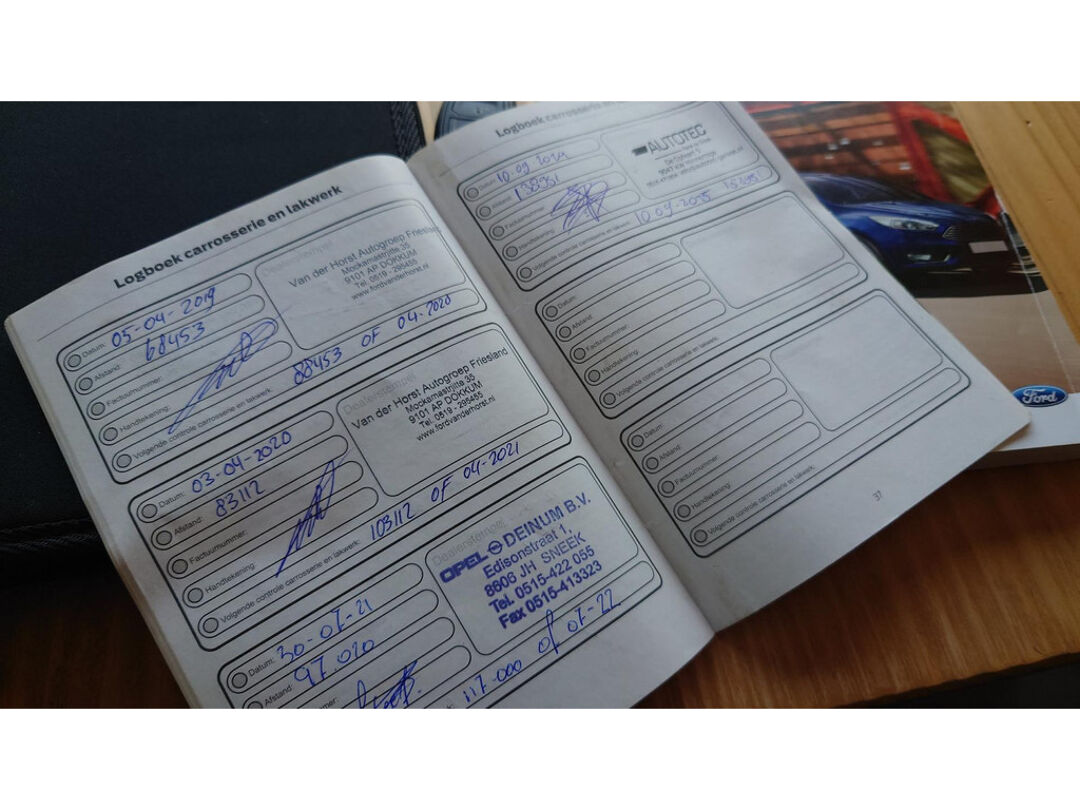 Logboek carrosserie en lakwerk
Datum: 05-04-2019
Afstand: 68453
Factuurnummer:
Handtekening:
Volgende controle carrosserie en lakwerk: 88453 OF 04-2020
Dealerstempel
Van der Horst Autogroep Friesland
Mockamastrjitte 35
9101 AP DOKKUM
Tel. 0519 - 295455
www.fordvanderhorst.nl
Datum: 03-04-2020
Afstand: 83112
Factuurnummer:
Handtekening:
Volgende controle carrosserie en lakwerk: 103112 OF 04-2021
Dealerstempel
Van der Horst Autogroep Friesland
Mockamastrjitte 35
9101 AP DOKKUM
Tel. 0519 - 295455
www.fordvanderhorst.nl
Datum: 30-07-21
Afstand: 97 020
117-000 of 07-22
Dealerstempel
OPEL DEINUM B.V.
Edisonstraat 1,
8606 JH SNEEK
Tel. 0515-422 055
Fax 0515-413323
Logboek carrosserie en
Datum: 10-09-2024
Afstand: 138951
Factuurnummer:
Handtekening:
Volgende controle carrosserie en lakwerk: 10-09-2025 158951
AUTOTEC
Datum:
Afstand:
Factuurnummer:
Handtekening:
Volgende controle carrosserie en lakwerk:
Datum:
Afstand:
Factuurnummer:
Handtekening:
Volgende controle carrosserie en lakwerk:
37
Ford